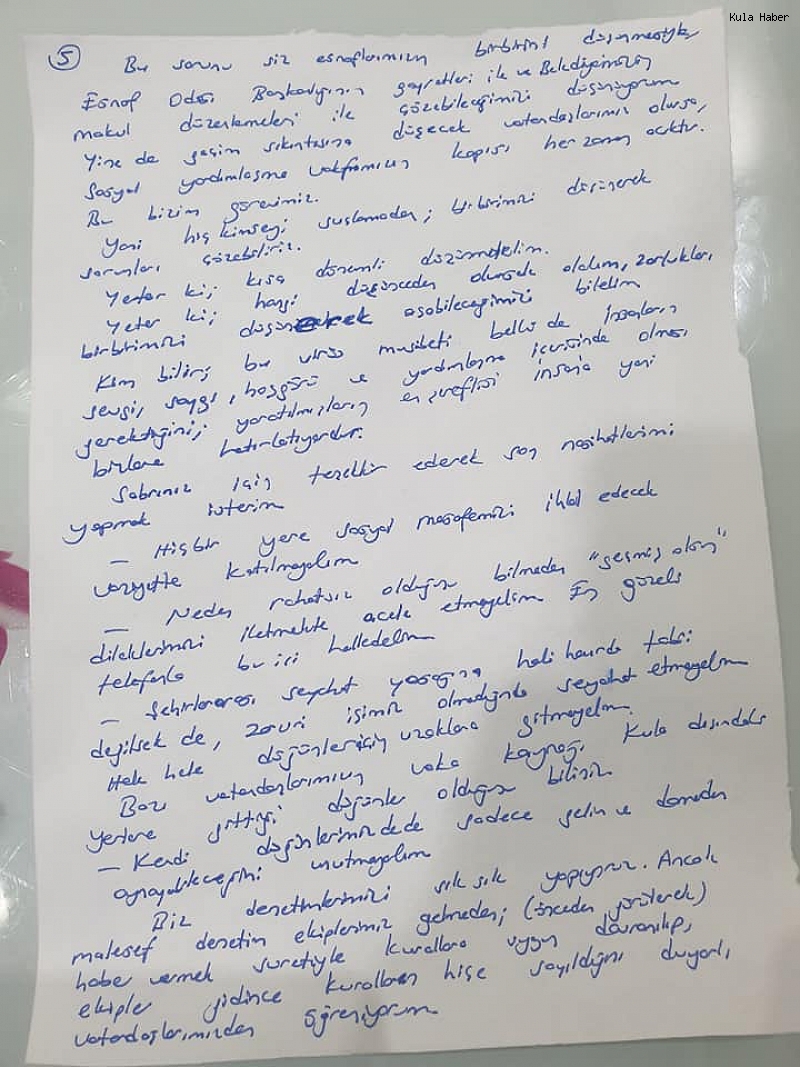 Kula Haber
5
Bu sorunu siz esnaflarımızın birbirini düşünmesiyle
Esnof Odası Başkanlığının gayretleri ile ve Belediyemizin
makul düzenlemeleri ile çözebileceğimizi düşünüyorum
Yine de geçim sıkıntasına düşecek vatandaşlarımız olursa,
Sosyal yardımlaşma vakfımızın kapısı her zaman açıktır.
Bu bizim görevimiz.
Yani hiç kimseyi suçlamadan, birbirimizi düşünerek
sorunları çözebiliriz.
Yeter ki; kısa dönemli düşünmeyelim.
Yeter ki; hangi düşünceden olursak olalım, zorlukları
birbirimizi düşünerek aşabileceğimizi bilelim
Kim bilir; bu virüs musibeti belki de İnsanların
sevgi, saygı, hoşgörü ve yardımlaşma içerisinde olması
gerektiğini; yaratılmışların en şereflisi insana yani
bizlere hatırlatıyordur.
Sabrınız için teşekkür ederek son nasihatlerimi
yapmak isterim
— Hiçbir yere sosyal mesafemizi ihlal edecek
vaziyette katılmayalım
— Neden rahatsız olduğunu bilmeden "geçmiş olsun"
dileklerimizi iletmekte acele etmeyelim En güzeli
telefonla bu işi halledelim
— Şehirlerarası seyahat yasağına hali hazırda tabi
değilsek de, zaruri işimiz olmadığında seyahat etmeyelim
Hele hele düğünler için uzaklara gitmeyelim.
Bazı vatandaşlarımızın vaka kaynağı Kula dışındaki
yerlere gittiği düğünler olduğunu biliniz
— Kendi düğünlerimizde de sadece gelin ve damadın
oynayabileceğini unutmayalım
Biz denetimlerimizi sık sık yapıyoruz. Ancak
malesef denetim ekiplerimiz gelmeden; (önceden görülerek)
haber vermek suretiyle kurallara uygun davranılıp,
ekipler gidince kuralların hiçe sayıldığını duyarlı
vatandaşlarımızdan öğreniyorum